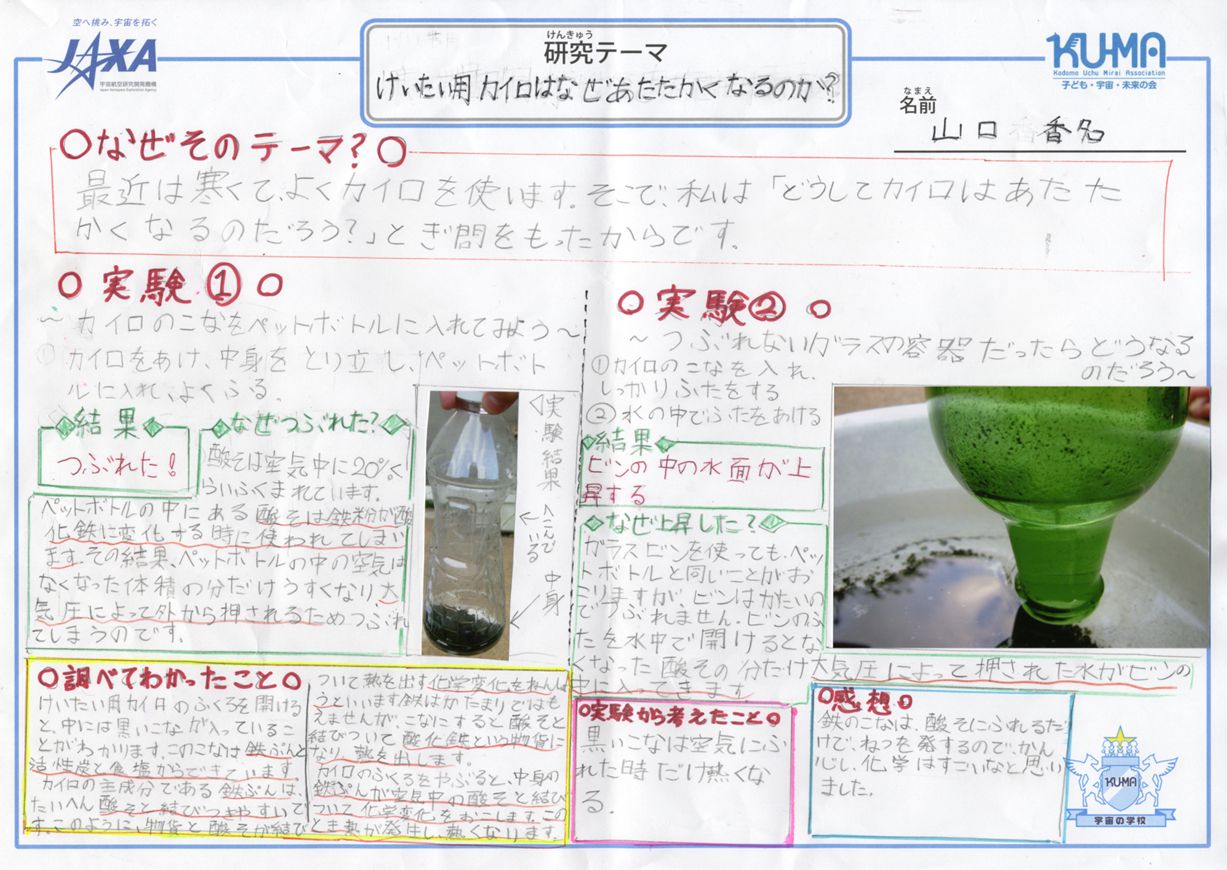 空へ挑み、宇宙を拓く
JAXA
宇宙航空研究開発機構
Japan Aerospace Exploration Agency
けんきゅう
研究テーマ
けいたい用カイロはなぜあたたかくなるのか?
KUMA
Kodomo Uchu Mirai Association
子ども・宇宙・未来の会
なまえ
名前
山口 香名
○なぜそのテーマ?○
最近は寒くて、よくカイロを使います。そこで、私は「どうしてカイロはあたた
かくなるのだろう?」とぎ問をもったからです。
○実験①○
～カイロのこなをペットボトルに入れてみよう～
①カイロをあけ、中身をとり立し、ペットボト
ルに入れ、よくふる。
結果
つぶれた!
なぜつぶれた?
酸そは空気中に20%く
らいふくまれています。
ペットボトルの中にある酸そは鉄粉が酸
化鉄に変化する時に使われてしまい
ます。その結果、ペットボトルの中の空気は
なくなった体積の分だけうすくなり、大
気圧によって外から押されるためつぶれ
てしまうのです。
実験結果
へこんで
いる
中身
○実験②○
～つぶれないガラスの容器だったらどうなる
のだろう～
①カイロのこなを入れ、
しっかりふたをする
②水の中でふたをあける
結果
ビンの中の水面が上
昇する
なぜ上昇した?
ガラスビンを使っても、ペッ
トボトルと同いことがお
こりますが、ビンはかたいの
でつぶれません。ビンのふ
たを水中で開けるとな
くなった酸その分だけ大気圧によって押された水がビンの
中に入ってきます
○調べてわかったこと○
けいたい用カイロのふくろを開ける
と、中には黒いこなが入っているこ
とがわかります。このこなは鉄ぷんと
活性炭と食塩からできています。
カイロの主成分である鉄ぷんは、
たいへん酸そと結びつきやすいで
す。このように、物質と酸そが結び
ついて熱を出す化学変化をねんし
ょうといいます鉄はかたまりではも
えませんが、こなにすると酸そと
結びついて酸化鉄という物質に
なり、熱を出します。
カイロのふくろをやぶると、中身の
鉄ぷんが空気中の酸そと結び
ついて化学変化をおこします。この
とき熱が発生し、熱くなります。
○実験から考えたこと○
黒いこなは空気にふ
れた時だけ熱くな
る。
○感想○
鉄のこなは、酸そにふれるだ
けで、ねつを発するので、かん
心し、化学はすごいなと思い
ました。
KUMA
宇宙の学校